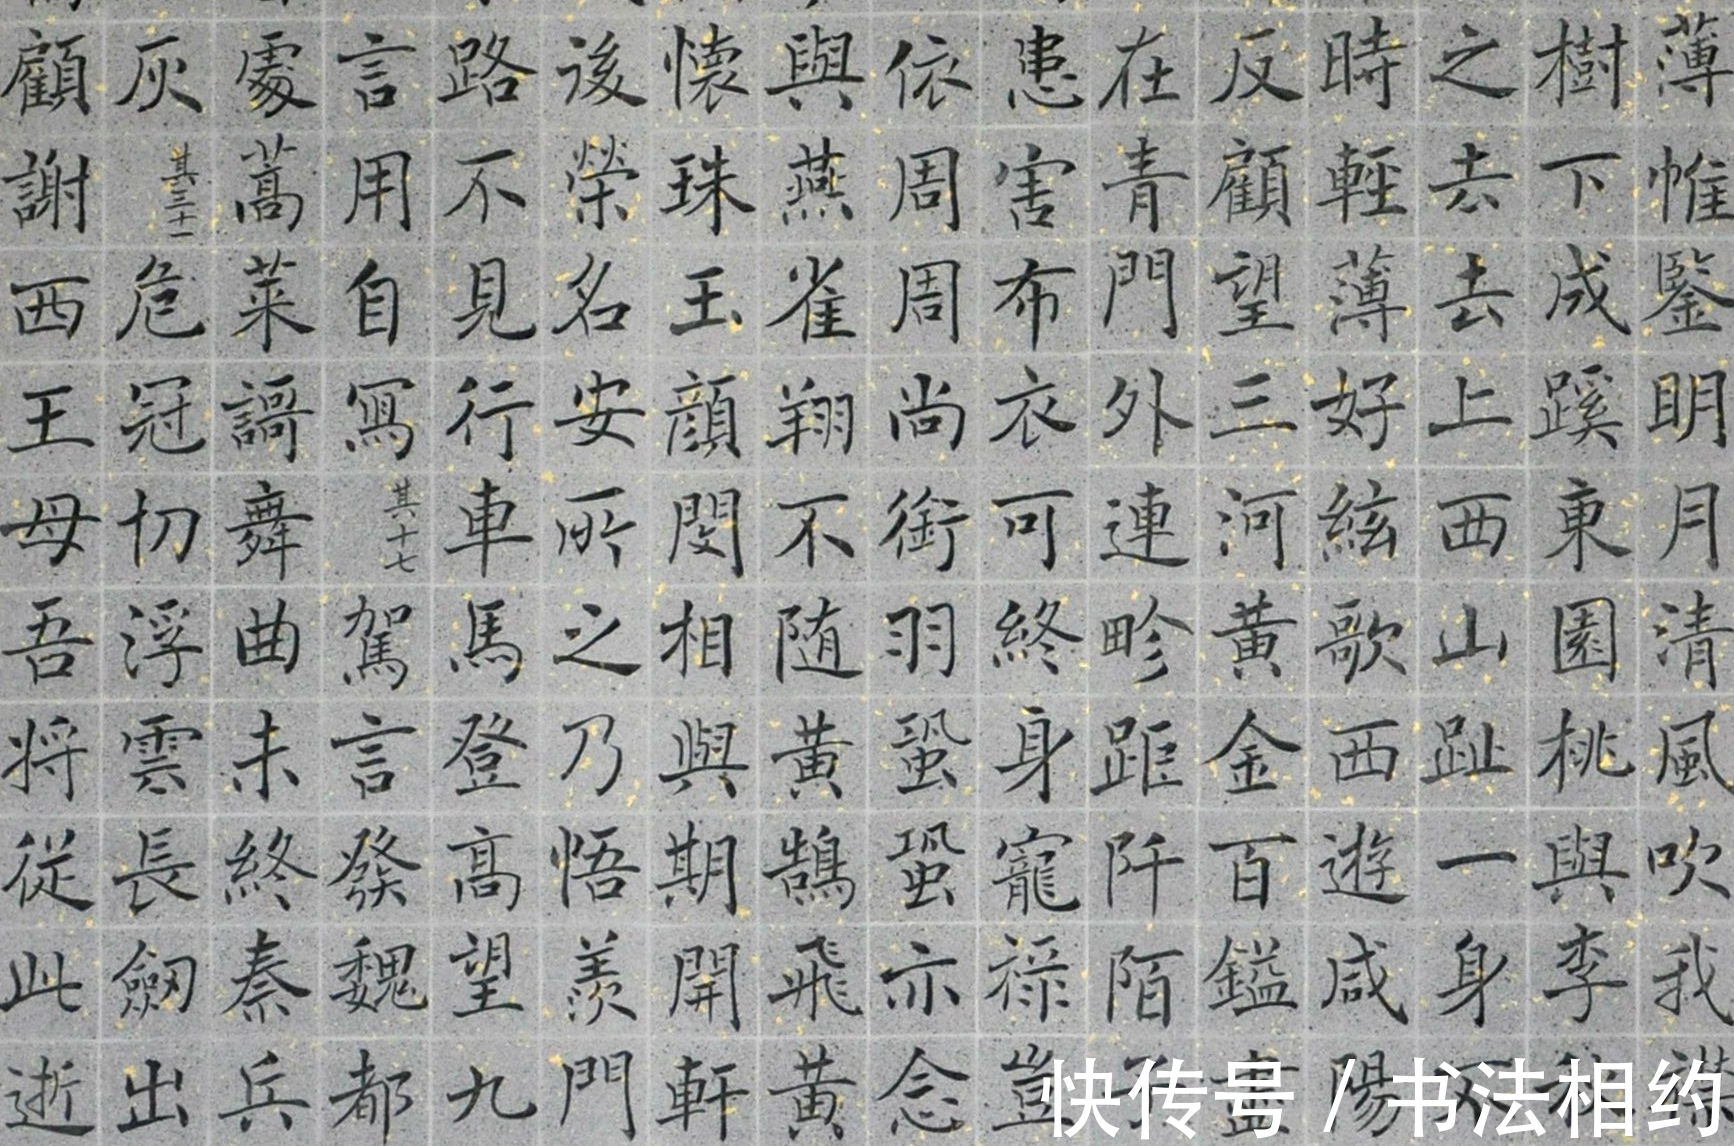 薄帷鑒明月清風吹我襟
樹下成蹊東園桃與李
之去去上西山趾一身不
時輕薄好絃歌西遊咸陽
反顧望三河黃金百鎰盡
在青門外連畛距阡陌子
患害布衣可終身寵祿豈
依周周尚銜羽蛩蛩亦念
與燕雀翔不随黃鵠飛黃
懷珠玉顏閔相與期開軒
後榮名安所之乃悟羨門
路不見行車馬登高望九
言用自寫其十七駕言發魏都
處蒿萊謌舞曲未終秦兵
灰其三十一危冠切浮雲長劔出
顧謝西王母吾将從此逝
快传号 / 书法相约